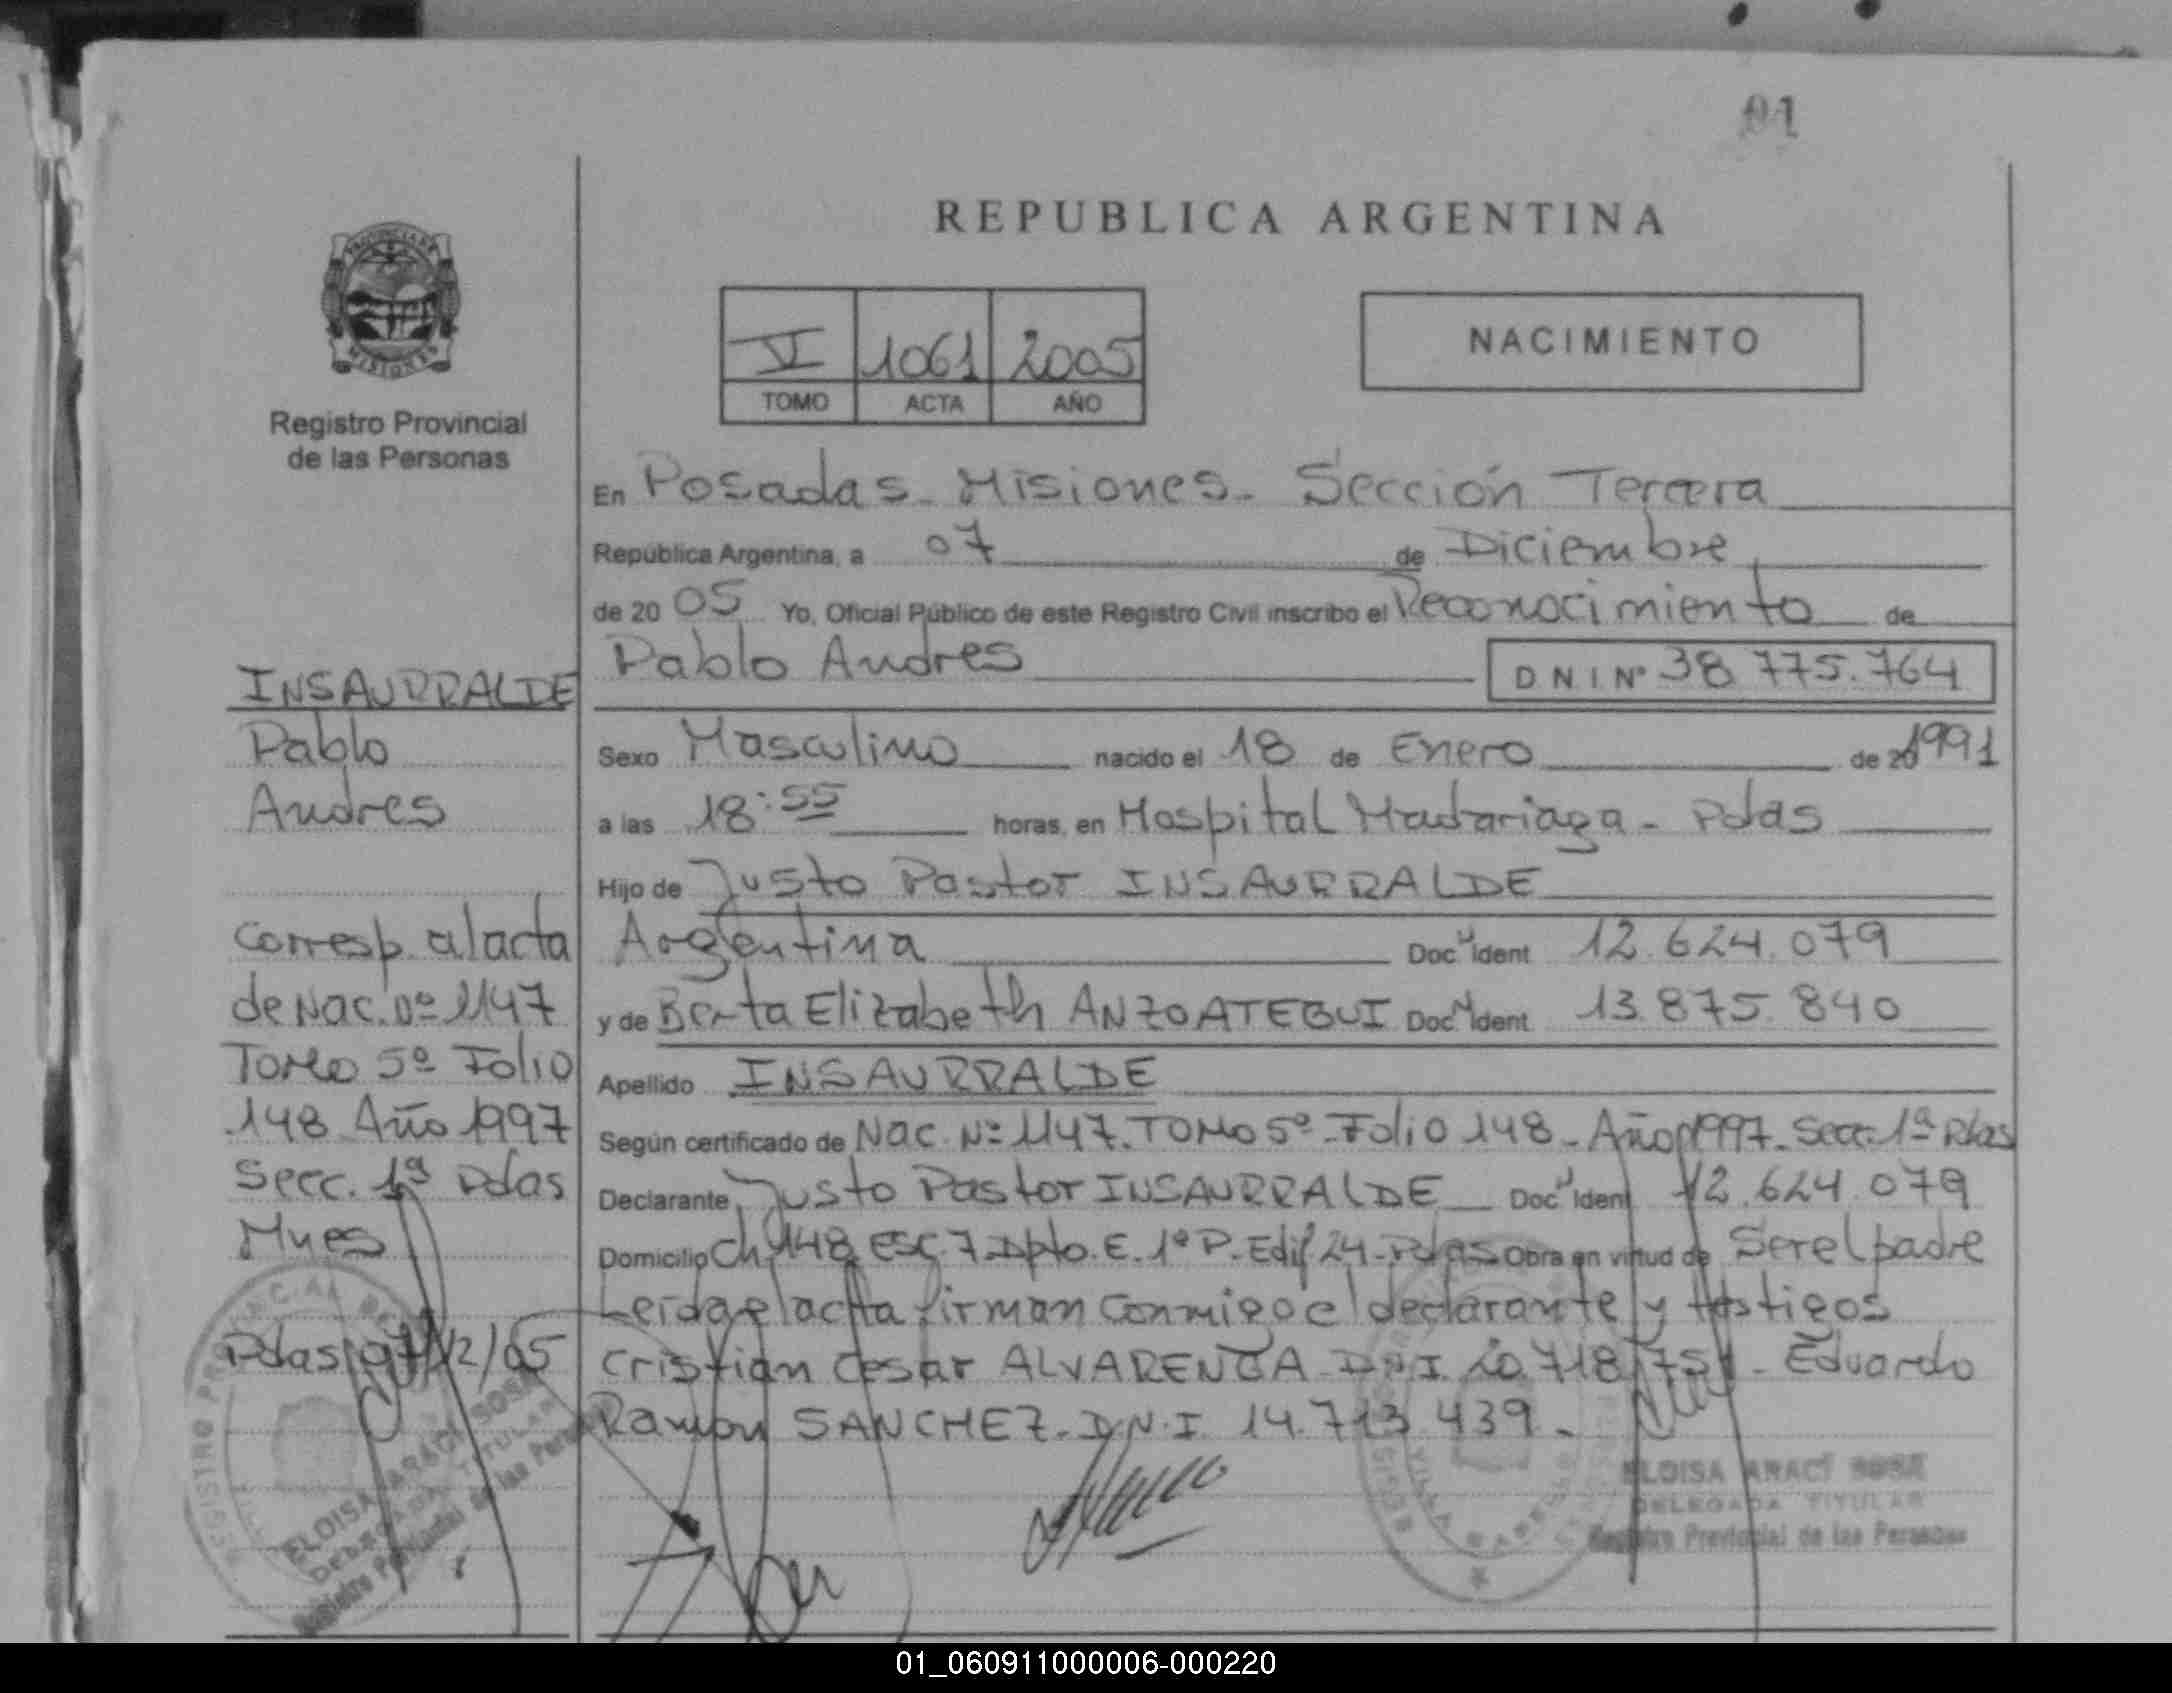 01
REPUBLICA ARGENTINA
PROVINCIA DE
MISIONES
Registro Provincial
de las Personas
VI 1061 2005
TOMO ACTA AÑO
NACIMIENTO
En Posadas - Misiones - Sección Tercera
República Argentina, a 07 de Diciembre
de 20 05 Yo, Oficial Público de este Registro Civil inscribo el Reconocimiento de
Pablo Andres D N I Nº 38 775.764
Sexo Masculino nacido el 18 de Enero de 20 1991
a las 18:55 horas, en Hospital Madariaga - Pdas
Hijo de Justo Pastor INSAURRALDE
Argentina Doc Ident 12.624.079
y de Berta Elizabeth ANZOATEGUI Doc Ident 13.875.840
Apellido INSAURRALDE
Según certificado de Nac. Nº 1147. TOMO 5º - Folio 148 - Año 1997 - Secc. 1ª Pdas
Declarante Justo Pastor INSAURRALDE Doc Ident 12.624.079
Domicilio Ch 148 ESC. 7 Dpto. E. 1º P. Edif 24 - Pdas Obra en virtud de Ser el padre
Leida el acta firman conmigo el declarante y testigos
Cristian Cesar ALVARENGA - D.N.I. 20.718 - Eduardo
Ramon SANCHEZ - D.N.I. 14.713.439 -
INSAURRALDE
Pablo
Andres
Corresp. al acta
de Nac. Nº 1147
TOMO 5º Folio
148 Año 1997
Secc. 1ª Pdas
Mnes
Pdas, 07/12/05
REGISTRO PROVINCIAL DE
ELOISA ARACI SOSA
DELEGADA TITULAR
Registro Provincial de las Personas
ELOISA ARACI SOSA
DELEGADA TITULAR
Registro Provincial de las Personas
01_060911000006-000220